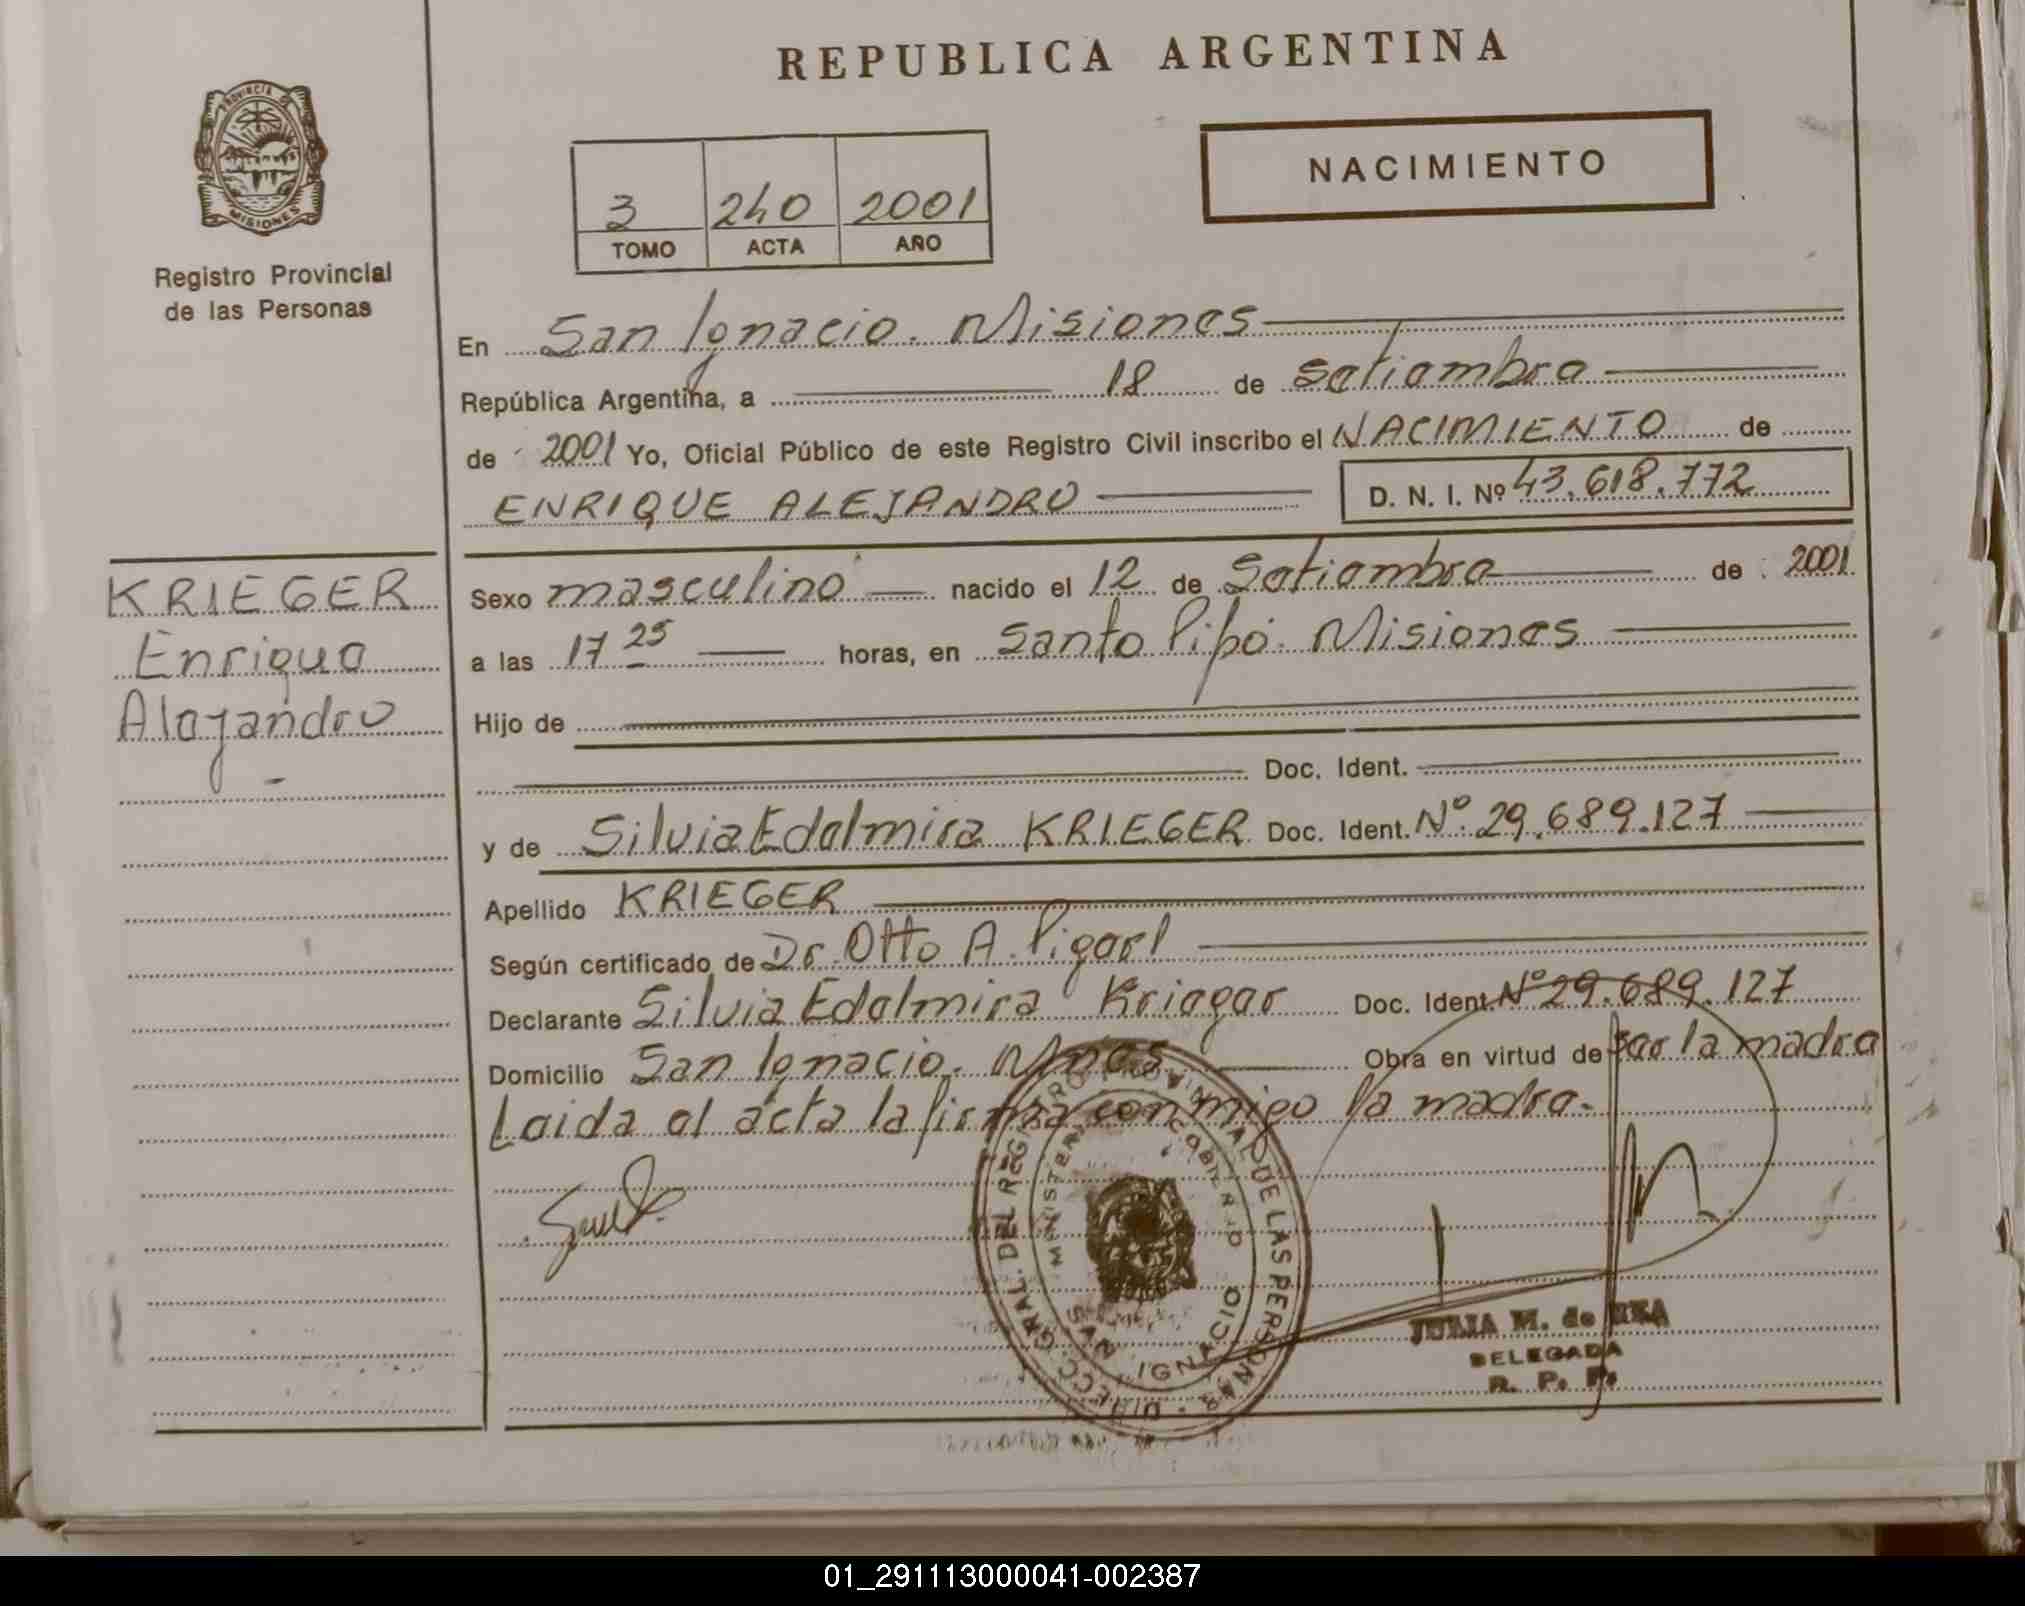 REPUBLICA ARGENTINA
PROVINCIA DE
MISIONES
Registro Provincial
de las Personas
3 240 2001
TOMO ACTA AÑO
NACIMIENTO
En San Ignacio. Misiones
República Argentina, a 18 de setiembre
de 2001 Yo, Oficial Público de este Registro Civil inscribo el NACIMIENTO de
ENRIQUE ALEJANDRO D. N. I. Nº 43.618.772
KRIEGER
Enrique
Alejandro
Sexo masculino nacido el 12 de Setiembre de 2001
a las 17 25 horas, en Santo Pipó. Misiones
Hijo de
Doc. Ident.
y de Silvia Edelmira KRIEGER Doc. Ident. Nº 29.689.127
Apellido KRIEGER
Según certificado de Dr. Otto A.
Declarante Silvia Edelmira Krieger Doc. Ident. Nº 29.689.127
Domicilio San Ignacio. Mnes Obra en virtud de ser la madre
Leida el acta la firma conmigo la madre.
DIRECC. GRAL. DEL REGISTRO PROVINCIAL DE LAS PERSONAS
MINISTERIO GOBIERNO
SAN IGNACIO
JULIA M. de REA
DELEGADA
R. P. P.
01_291113000041-002387